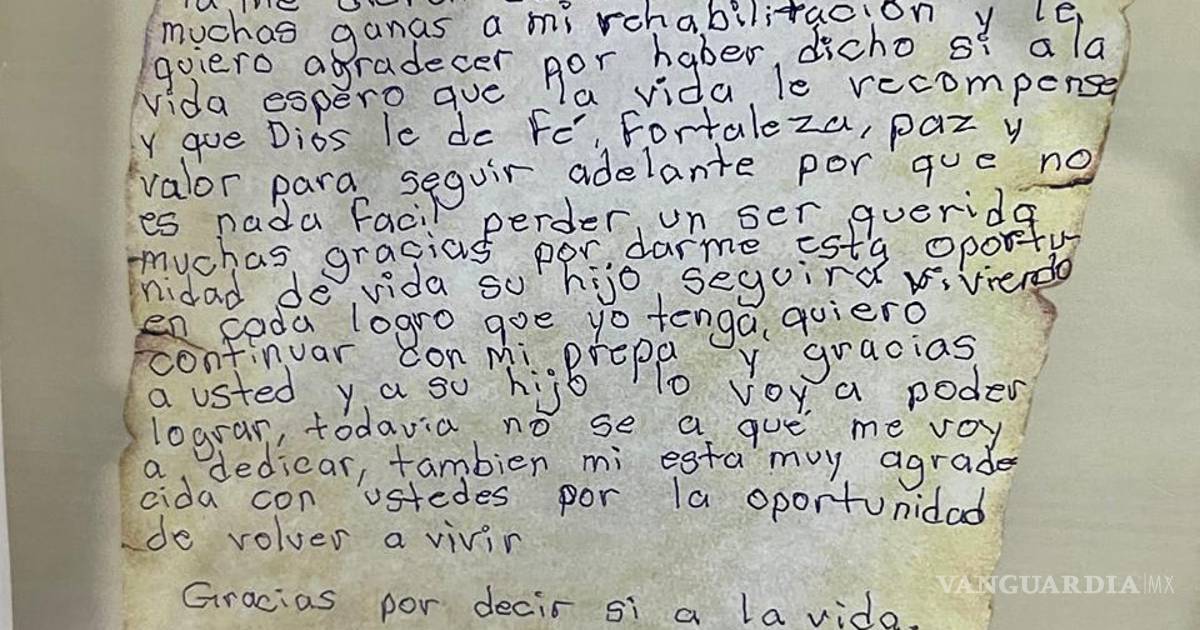 muchas ganas a mi rehabilitación y le
quiero agradecer por haber dicho si a la
vida espero que la vida le recompense
y que Dios le de Fé, Fortaleza, paz y
valor para seguir adelante por que no
es nada facil perder un ser querido
muchas gracias por darme esta oportu-
nidad de vida su hijo seguira viviendo
en cada logro que yo tenga, quiero
continuar con mi prepa y gracias
a usted y a su hijo lo voy a poder
lograr, todavia no se a que me voy
a dedicar, tambien mi esta muy agrade
cida con ustedes por la oportunidad
de volver a vivir
Gracias por decir si a la vida.
VANGUARDIA|MX